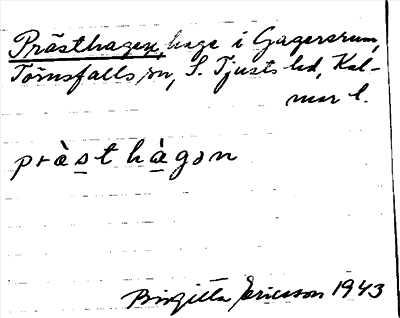 Prästhagen, hage i Gagersrum,
Törnsfalls sn, S. Tjusts hd, Kal-
mar l.
pràst hàgən
Birgitta Ericsson 1943